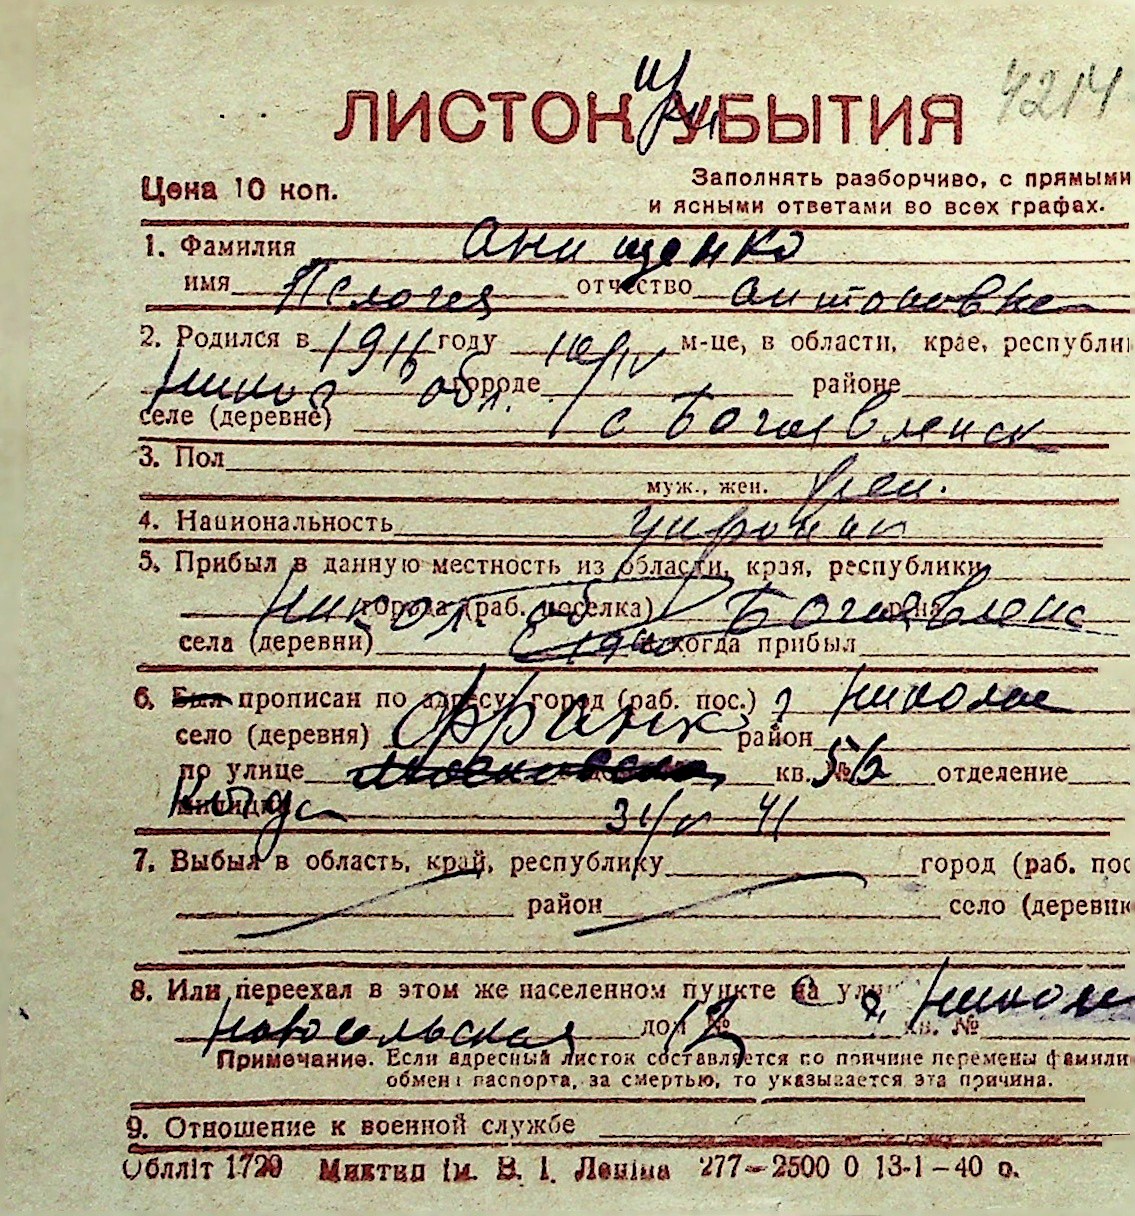 4214
ЛИСТОК УБЫТИЯ
Цена 10 коп.
Заполнять разборчиво, с прямыми
и ясными ответами во всех графах.
1. Фамилия Анищенко
имя Пелогея отчество Антоновна
2. Родился в году м-це, в области, крае, республи
обл. городе районе
селе (деревне) с Богоявленск
3. Пол
муж., жен. жен.
4. Национальность
5. Прибыл в данную местность из области, края, республики
города (раб. поселка)
села (деревни) и когда прибыл
6. Был прописан по адресу: город (раб. пос.) г Николае
село (деревня) Франко район
по улице кв. № 56 отделение
милиции 41
7. Выбыл в область, край, республику город (раб. пос
район село (деревню
8. Или переехал в этом же населенном пункте на ули
Новосельская дом № 12 кв. №
Примечание. Если адресный листок составляется по причине перемены фамилии
обмена паспорта, за смертью, то указывается эта причина.
9. Отношение к военной службе
Облліт 1729 Миктип ім. В. І. Леніна 277—2500 0 13-1-40 р.